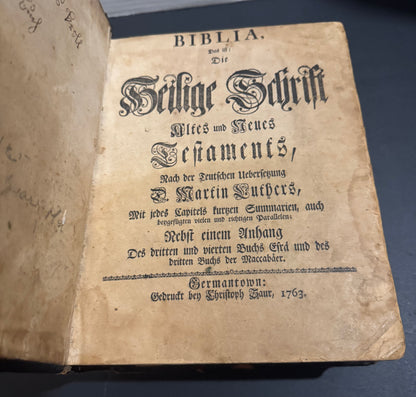 BIBLIA,
Das ist:
Die
Heilige Schrift
Altes und Neues
Testaments,
Nach der Teutschen Uebersetzung
D. Martin Luthers,
Mit jedes Capitels kurtzen Summarien, auch
beygefügten vielen und richtigen Parallelen:
Nebst einem Anhang
Des dritten und vierten Buchs Esrä und des
dritten Buchs der Maccabäer.
Germantown:
Gedruckt bey Christoph Saur, 1763.